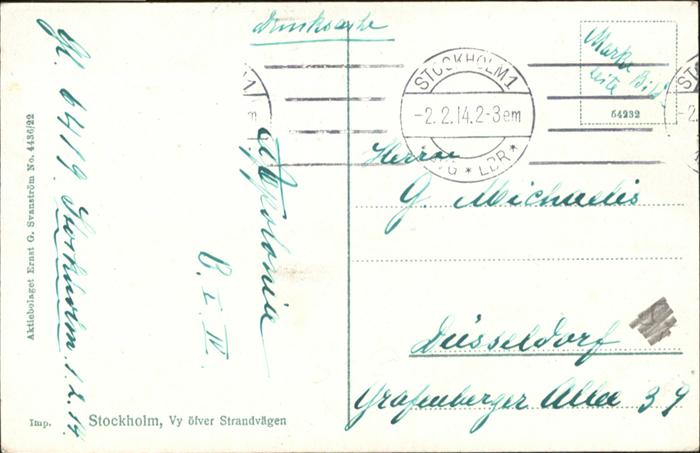 Drucksache
Marke Bild
seite
64232
STOCKHOLM 1
-2.2.14.2-3em
LBR
Herrn
G. Michaelis
Düsseldorf
Grafenberger Allee 39
Apolonia
6419 Stockholm 1.2.14.
Aktiebolaget Ernst G. Svanström No. 4436/22
Imp. Stockholm, Vy öfver Strandvägen